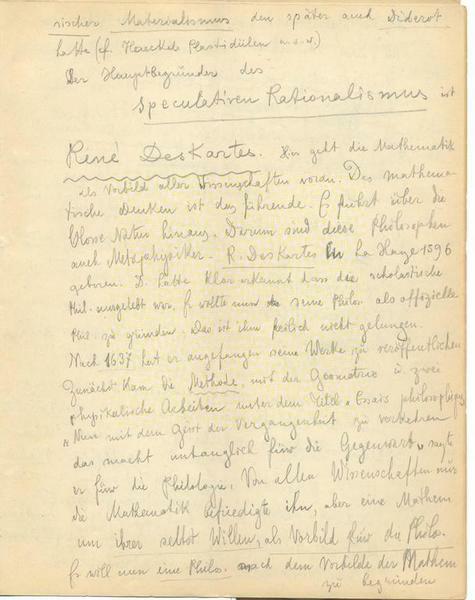 rischer Materialismus den später auch Diderot
hatte (cf. Haeckels Plastidülen u.s.w.)
Der Hauptbegründer des
Speculativen Rationalismus ist
Réné DesKartes. Hier geht die Mathematik
als Vorbild aller Wissenschaften voran. Das mathema-
tische Denken ist das führende. Es führt über die
blosse Natur hinaus. Darum sind diese Philosophen
auch Metaphysiker. R. DesKartes in La Haye 1596
geboren. D. hatte klar erkannt dass die scholastische
Phil. ausgelebt war, er wollte nun seine Philos. als offizielle
Phil. zu gründen. Das ist ihm freilich nicht gelungen.
Nach 1637 hat er angefangen seine Werke zu veröffentlichen
Zunächst kam die Methode, mit der Geometrie u. zwei
physikalische Arbeiten unter dem Titel „Essais philosophiques
„Nur mit dem Geist der Vergangenheit zu verkehren
das macht untauglich für die Gegenwart" sagte
er für die Philologie. Von allen Wissenschaften nur
die Mathematik befriedigte ihn, aber eine Mathem
um ihrer selbst Willen, als Vorbild für die Philo.
Er will nun eine Philo. nach dem Vorbilde der Mathem
zu begründen